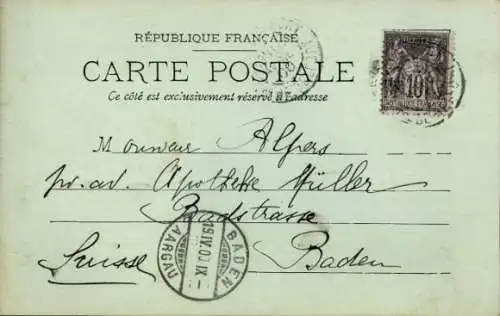 RÉPUBLIQUE FRANÇAISE
CARTE POSTALE
Ce côté est exclusivement réservé à l'adresse
Monsieur Alpers
pr. ad. Apotheke Müller
Badstrasse
Suisse Baden
BADEN
19.IV.00.IX
AARGAU
10